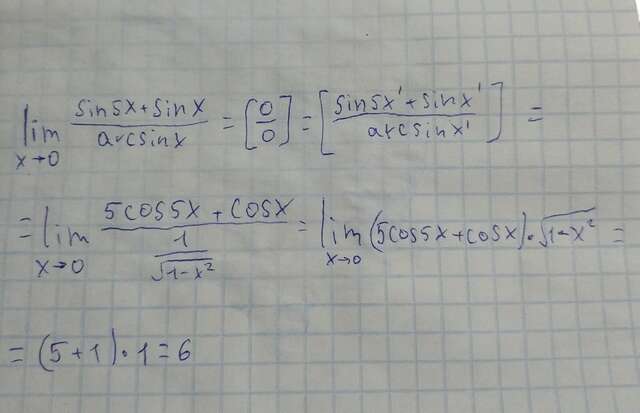 lim x→0 (sin5x+sinx)/(arcsinx) = [0/0] = [(sin5x'+sinx')/(arcsinx')] =
= lim x→0 (5cos5x+cosx)/(1/√(1-x²)) = lim x→0 (5cos5x+cosx)·√(1-x²) =
= (5+1)·1=6